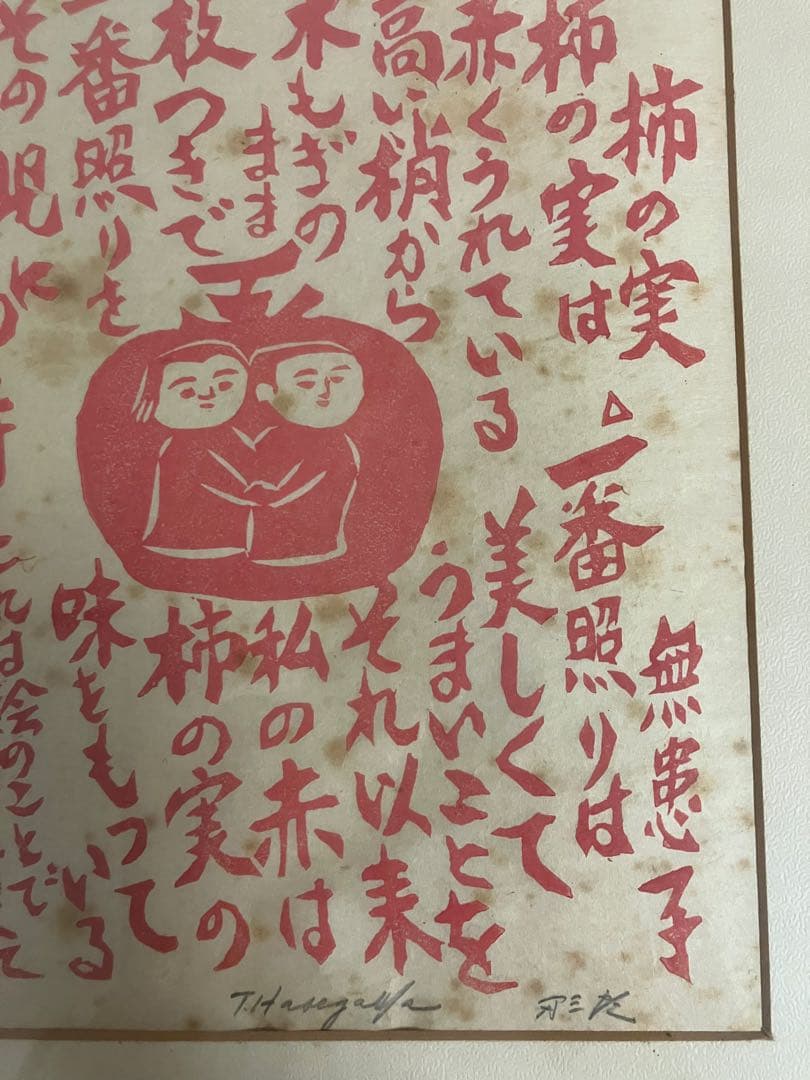 柿の実
無患子
柿の実は
赤くうれている
高い梢から
木もぎの
まま
枝つきで
一番照りを
その児に
△
一番照りは
美しくて
うまいことを
それ以来
私の赤は
柿の実の
味をもって
いる
これは絵のことで
T.Hasegawa